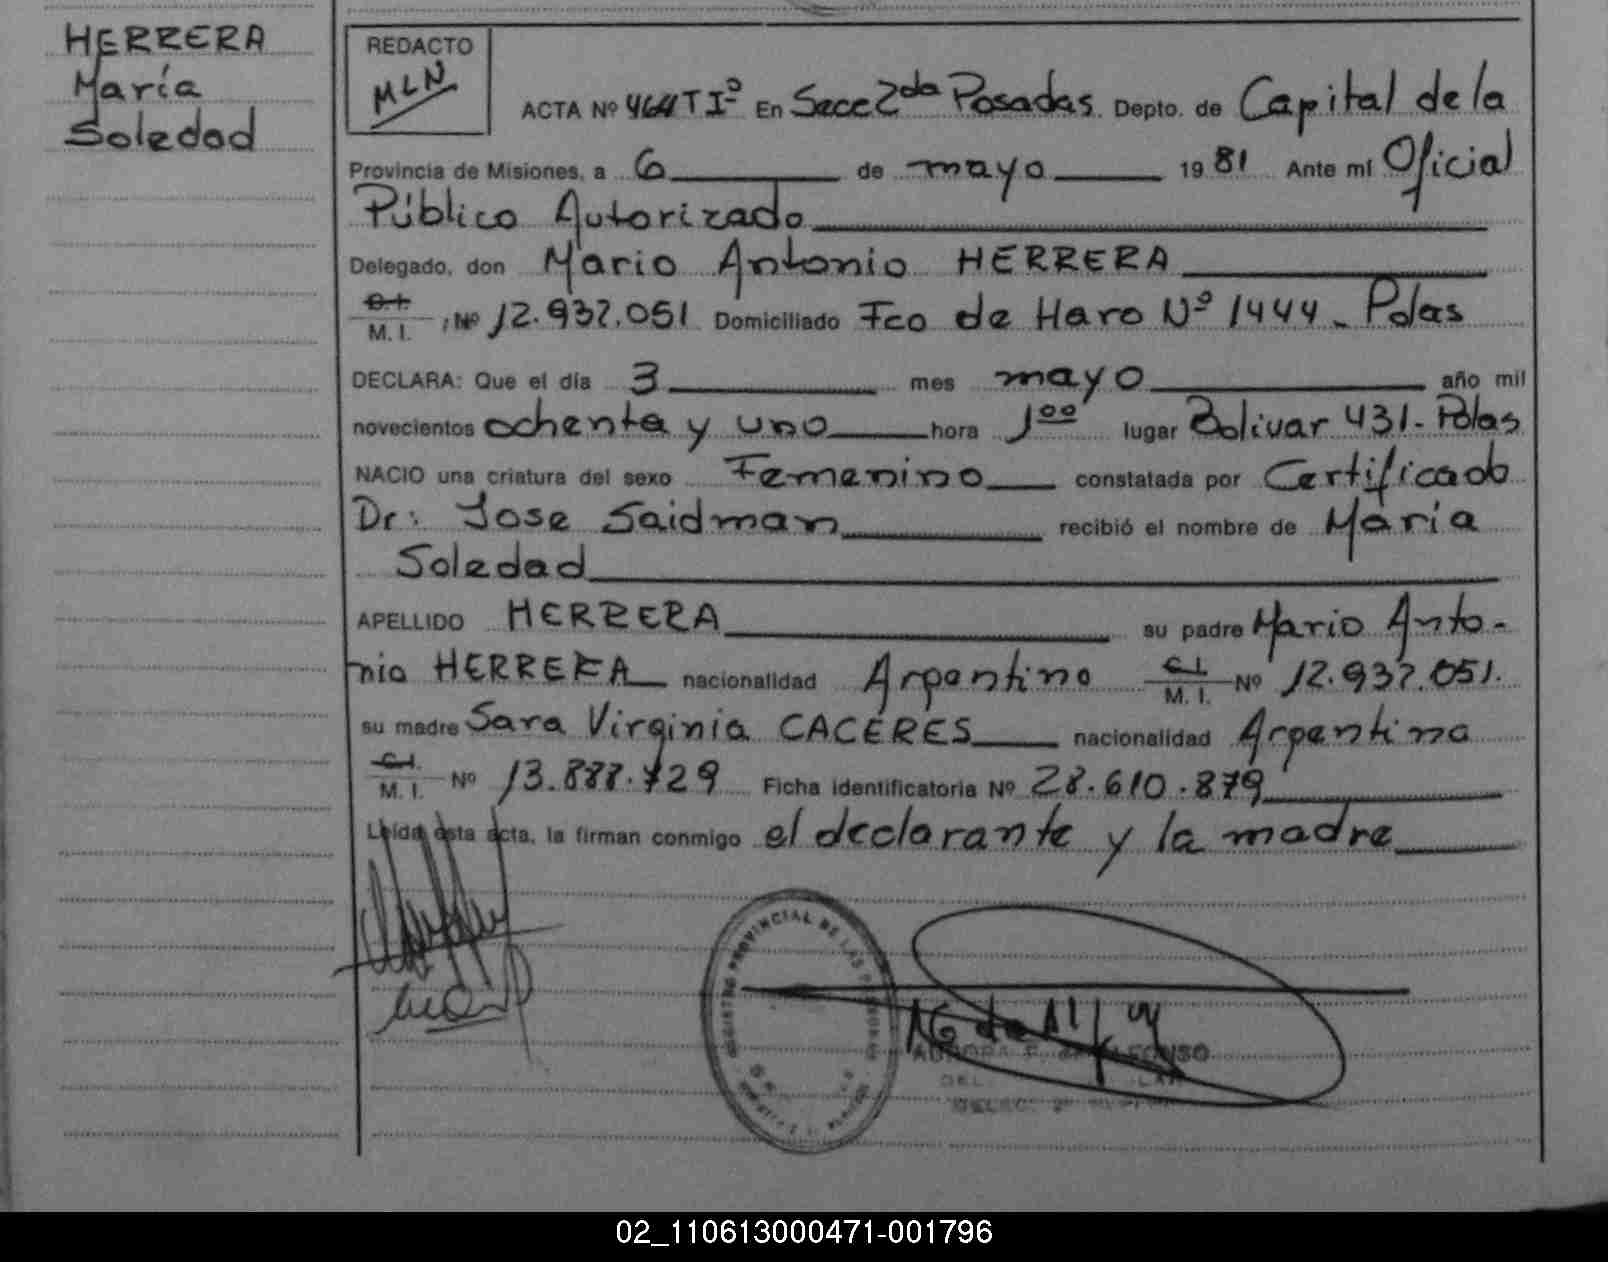 HERRERA
María
Soledad
REDACTO
MLN
ACTA Nº 464 T Iº En Secc 2da Posadas. Depto. de Capital de la
Provincia de Misiones, a 6 de mayo 1981 Ante mí Oficial
Público Autorizado
Delegado, don Mario Antonio HERRERA
C.I.
M. I. Nº 12.932.051 Domiciliado Fco de Haro Nº 1444 - Pdas
DECLARA: Que el día 3 mes mayo año mil
novecientos ochenta y uno hora 1⁰⁰ lugar Bolivar 431 - Pdas
NACIO una criatura del sexo Femenino constatada por Certificado
Dr: Jose Saidman recibió el nombre de María
Soledad
APELLIDO HERRERA su padre Mario Anto-
nio HERRERA nacionalidad Argentino C.I.
M. I. Nº 12.932.051.
su madre Sara Virginia CACERES nacionalidad Argentina
C.I.
M. I. Nº 13.888.729 Ficha identificatoria Nº 28.610.879
Leída ésta acta, la firman conmigo el declarante y la madre
REGISTRO PROVINCIAL DE LAS PERSONAS
02_110613000471-001796